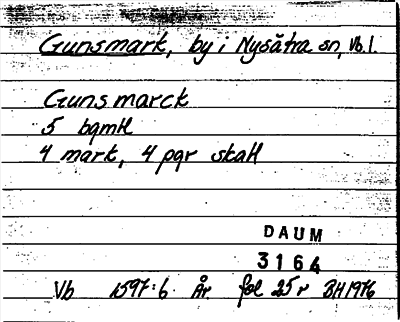 Gunsmark, by i Nysätra sn, Vb. l.
Gunsmarck
5 bqmtl
4 mark, 4 pgr skatt
DAUM
3164
Vb 1597:6 År fol 25 r BH 1976